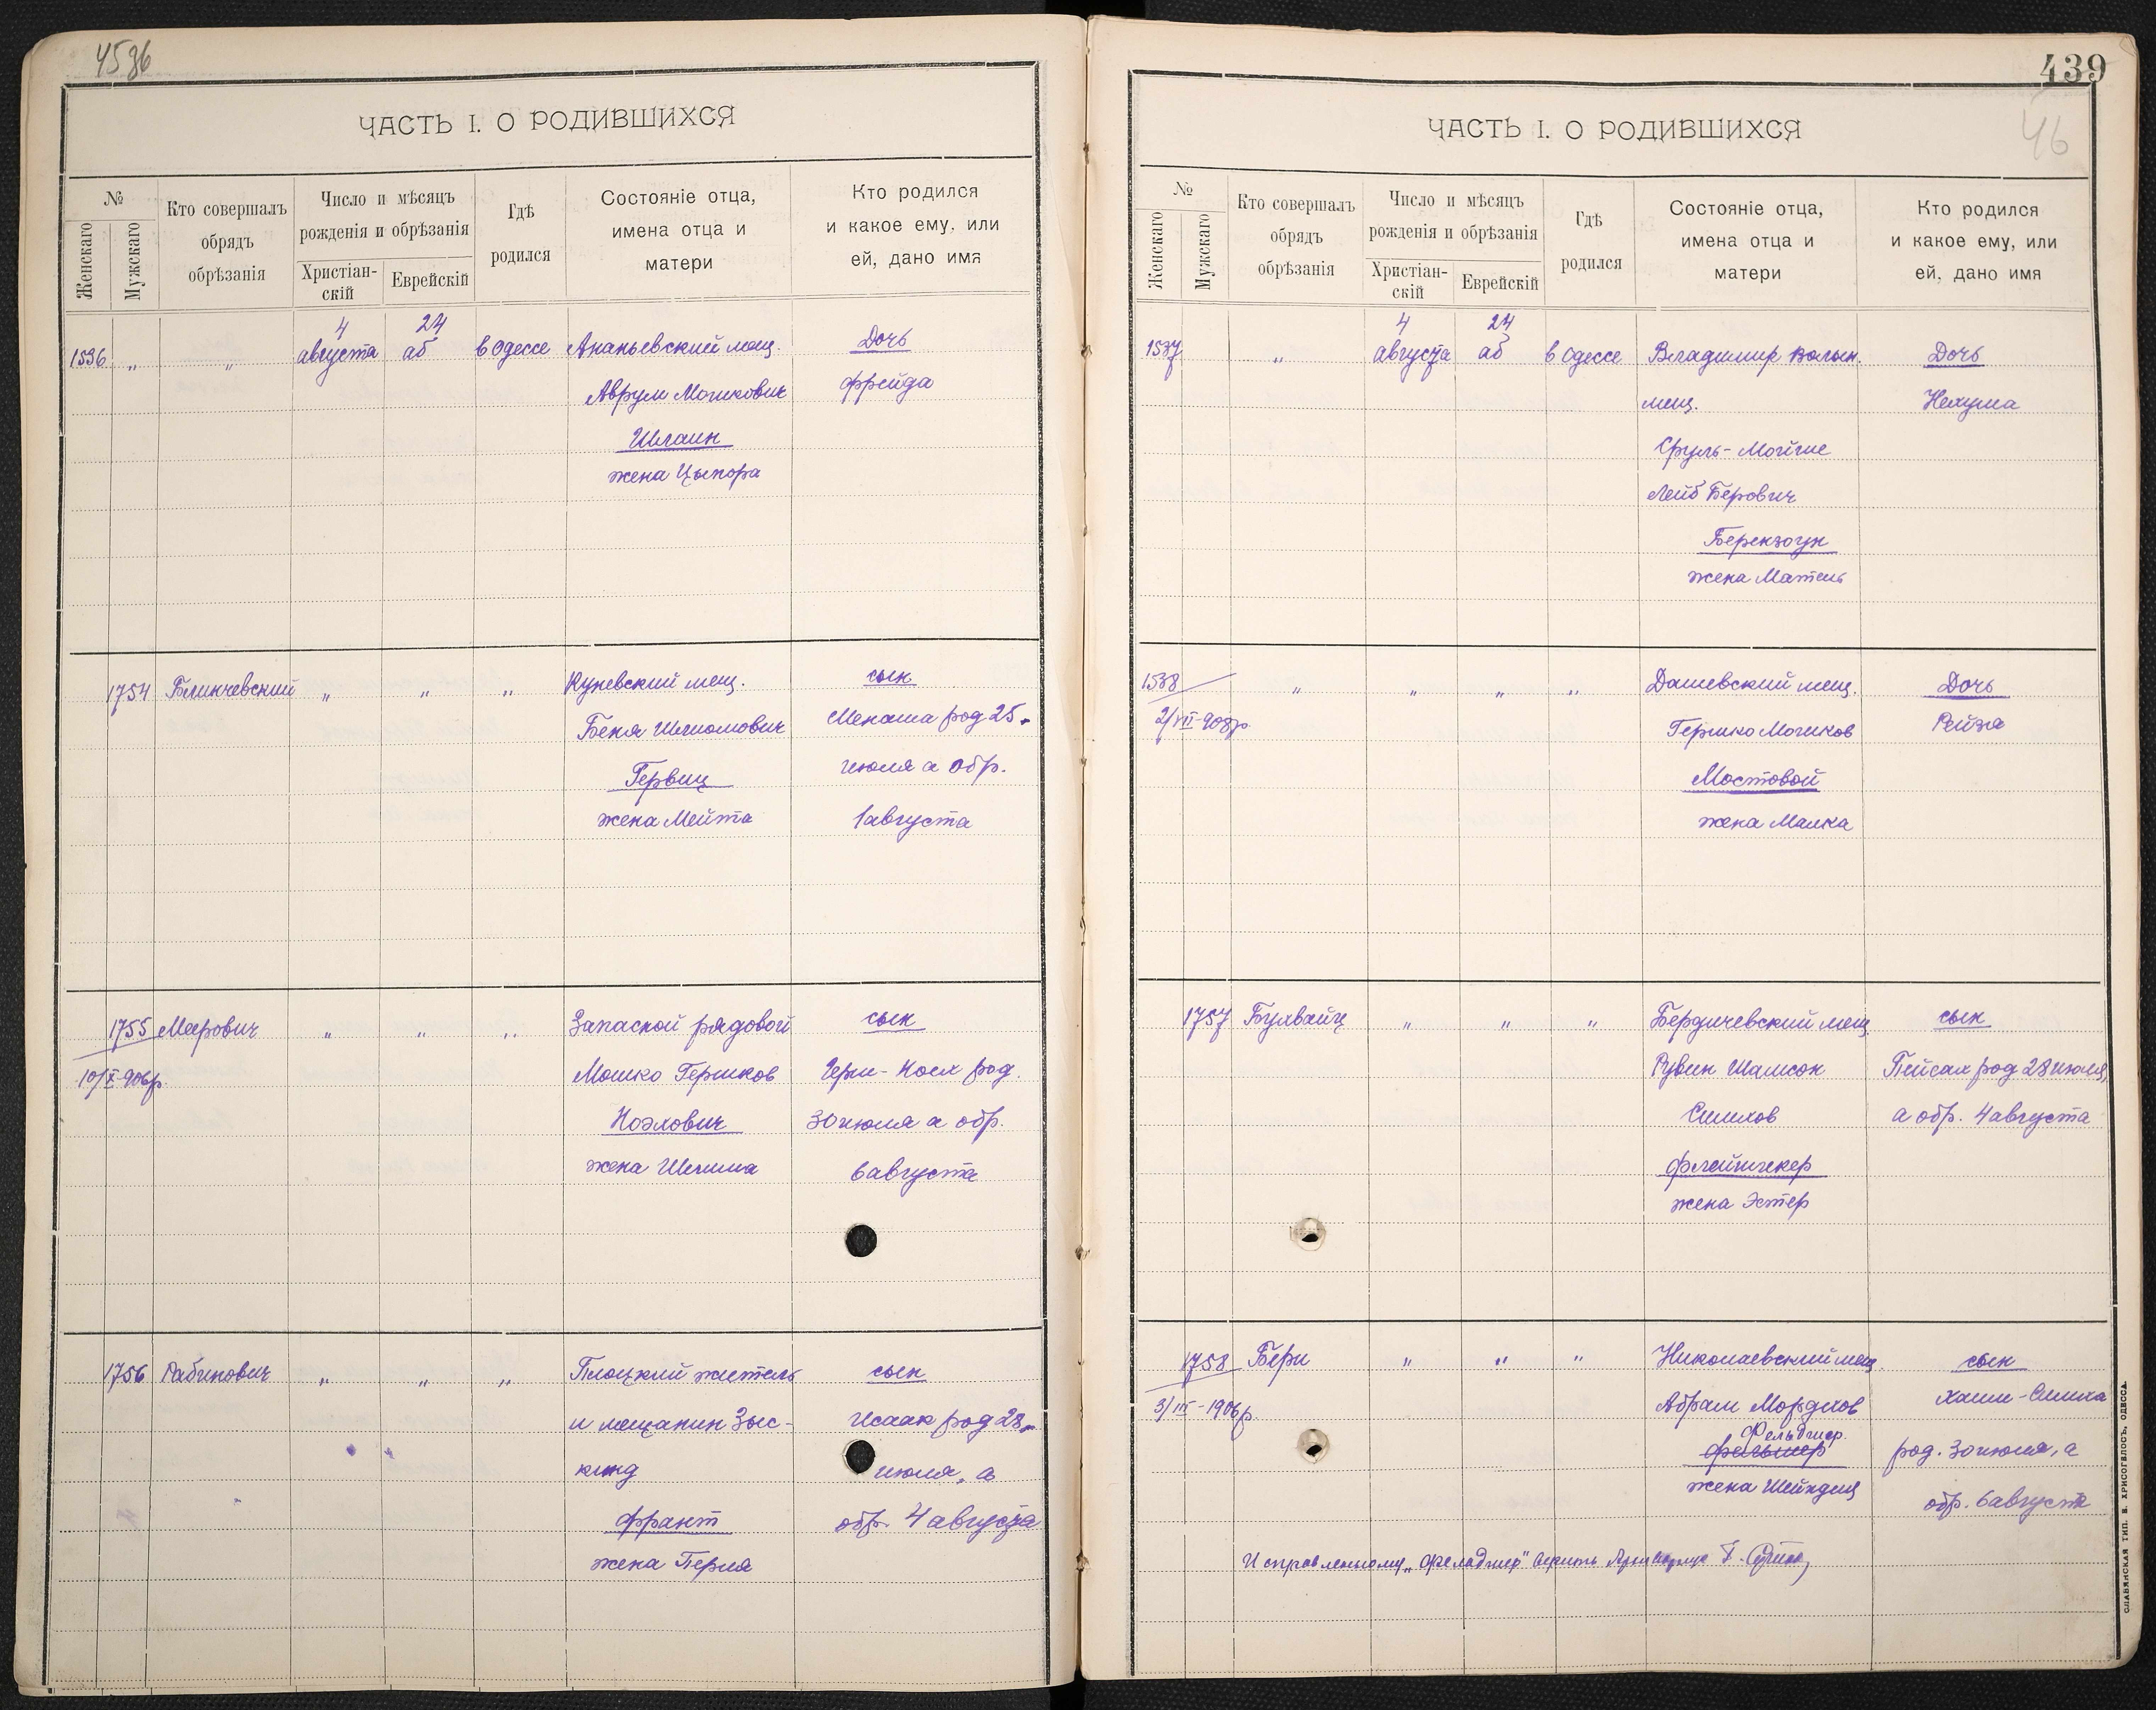 4536
ЧАСТЬ I. О РОДИВШИХСЯ
№
Женскаго
Мужскаго
Кто совершалъ
обрядъ
обрѣзанія
Число и мѣсяцъ
рожденія и обрѣзанія
Христіан-
скій
Еврейскій
Гдѣ
родился
Состояніе отца,
имена отца и
матери
Кто родился
и какое ему, или
ей, дано имя
4 24
1536 " " августа аб в Одессе Ананьевский мещ. Дочь
Аврум Мошкович Фрейда
Шлаин
жена Цыпора
1754 Блинчевский " " " Куневский мещ. сын
Беня Шлиомович Менаша род 25
Гервиц июля а обр.
жена Мейта 1 августа
1755 Меерович " " " Запасной рядовой сын
10/X-906р. Мошко Гершков Герш-Ноех род.
Ноэхович 30 июля а обр.
жена Шлима 6 августа
1756 Рабинович " " " Плоцкий житель сын
и мещанин Зыс- Исаак род 28
кинд июля, а
Франт обр. 4 августа
жена Перля
439
46
ЧАСТЬ I. О РОДИВШИХСЯ
№
Женскаго
Мужскаго
Кто совершалъ
обрядъ
обрѣзанія
Число и мѣсяцъ
рожденія и обрѣзанія
Христіан-
скій
Еврейскій
Гдѣ
родился
Состояніе отца,
имена отца и
матери
Кто родился
и какое ему, или
ей, дано имя
4 24
1537 " августа аб в Одессе Владимир Волын. Дочь
мещ. Нехума
Сруль-Мойше
Лейб Берович
Берензоун
жена Матель
1538 " " " " Дашевский мещ. Дочь
2/VII-908р. Гершко Мошков Рейза
Мостовой
жена Малка
1757 Булвайц " " " Бердичевский мещ. сын
Рувин Шамсон Пейсах род 28 июля,
Симхов а обр. 4 августа
Флейшлекер
жена Эстер
1758 Бери " " " Николаевский мещ. сын
3/III-1906р. Абрам Мордхов Хаим-Симха
Фельдшер.
Фельшер род. 30 июля, а
жена Шейндля обр. 6 августа
Исправленному "Фельдшер" верить
СЛАВЯНСКАЯ ТИП. Н. ХРИСОГЕЛОСЪ, ОДЕССА.